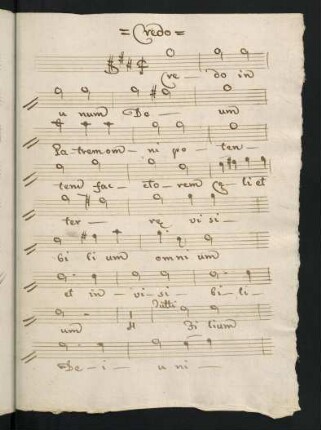 = Credo =
Cre - do in
u num De - um
Patrem om - ni po - ten -
tem fac - ctorem cę - li et
ter - rę vi si -
bi li um omni um
et in - vi - si - bi - li -
um Tutti Filium
De - i - u ni -